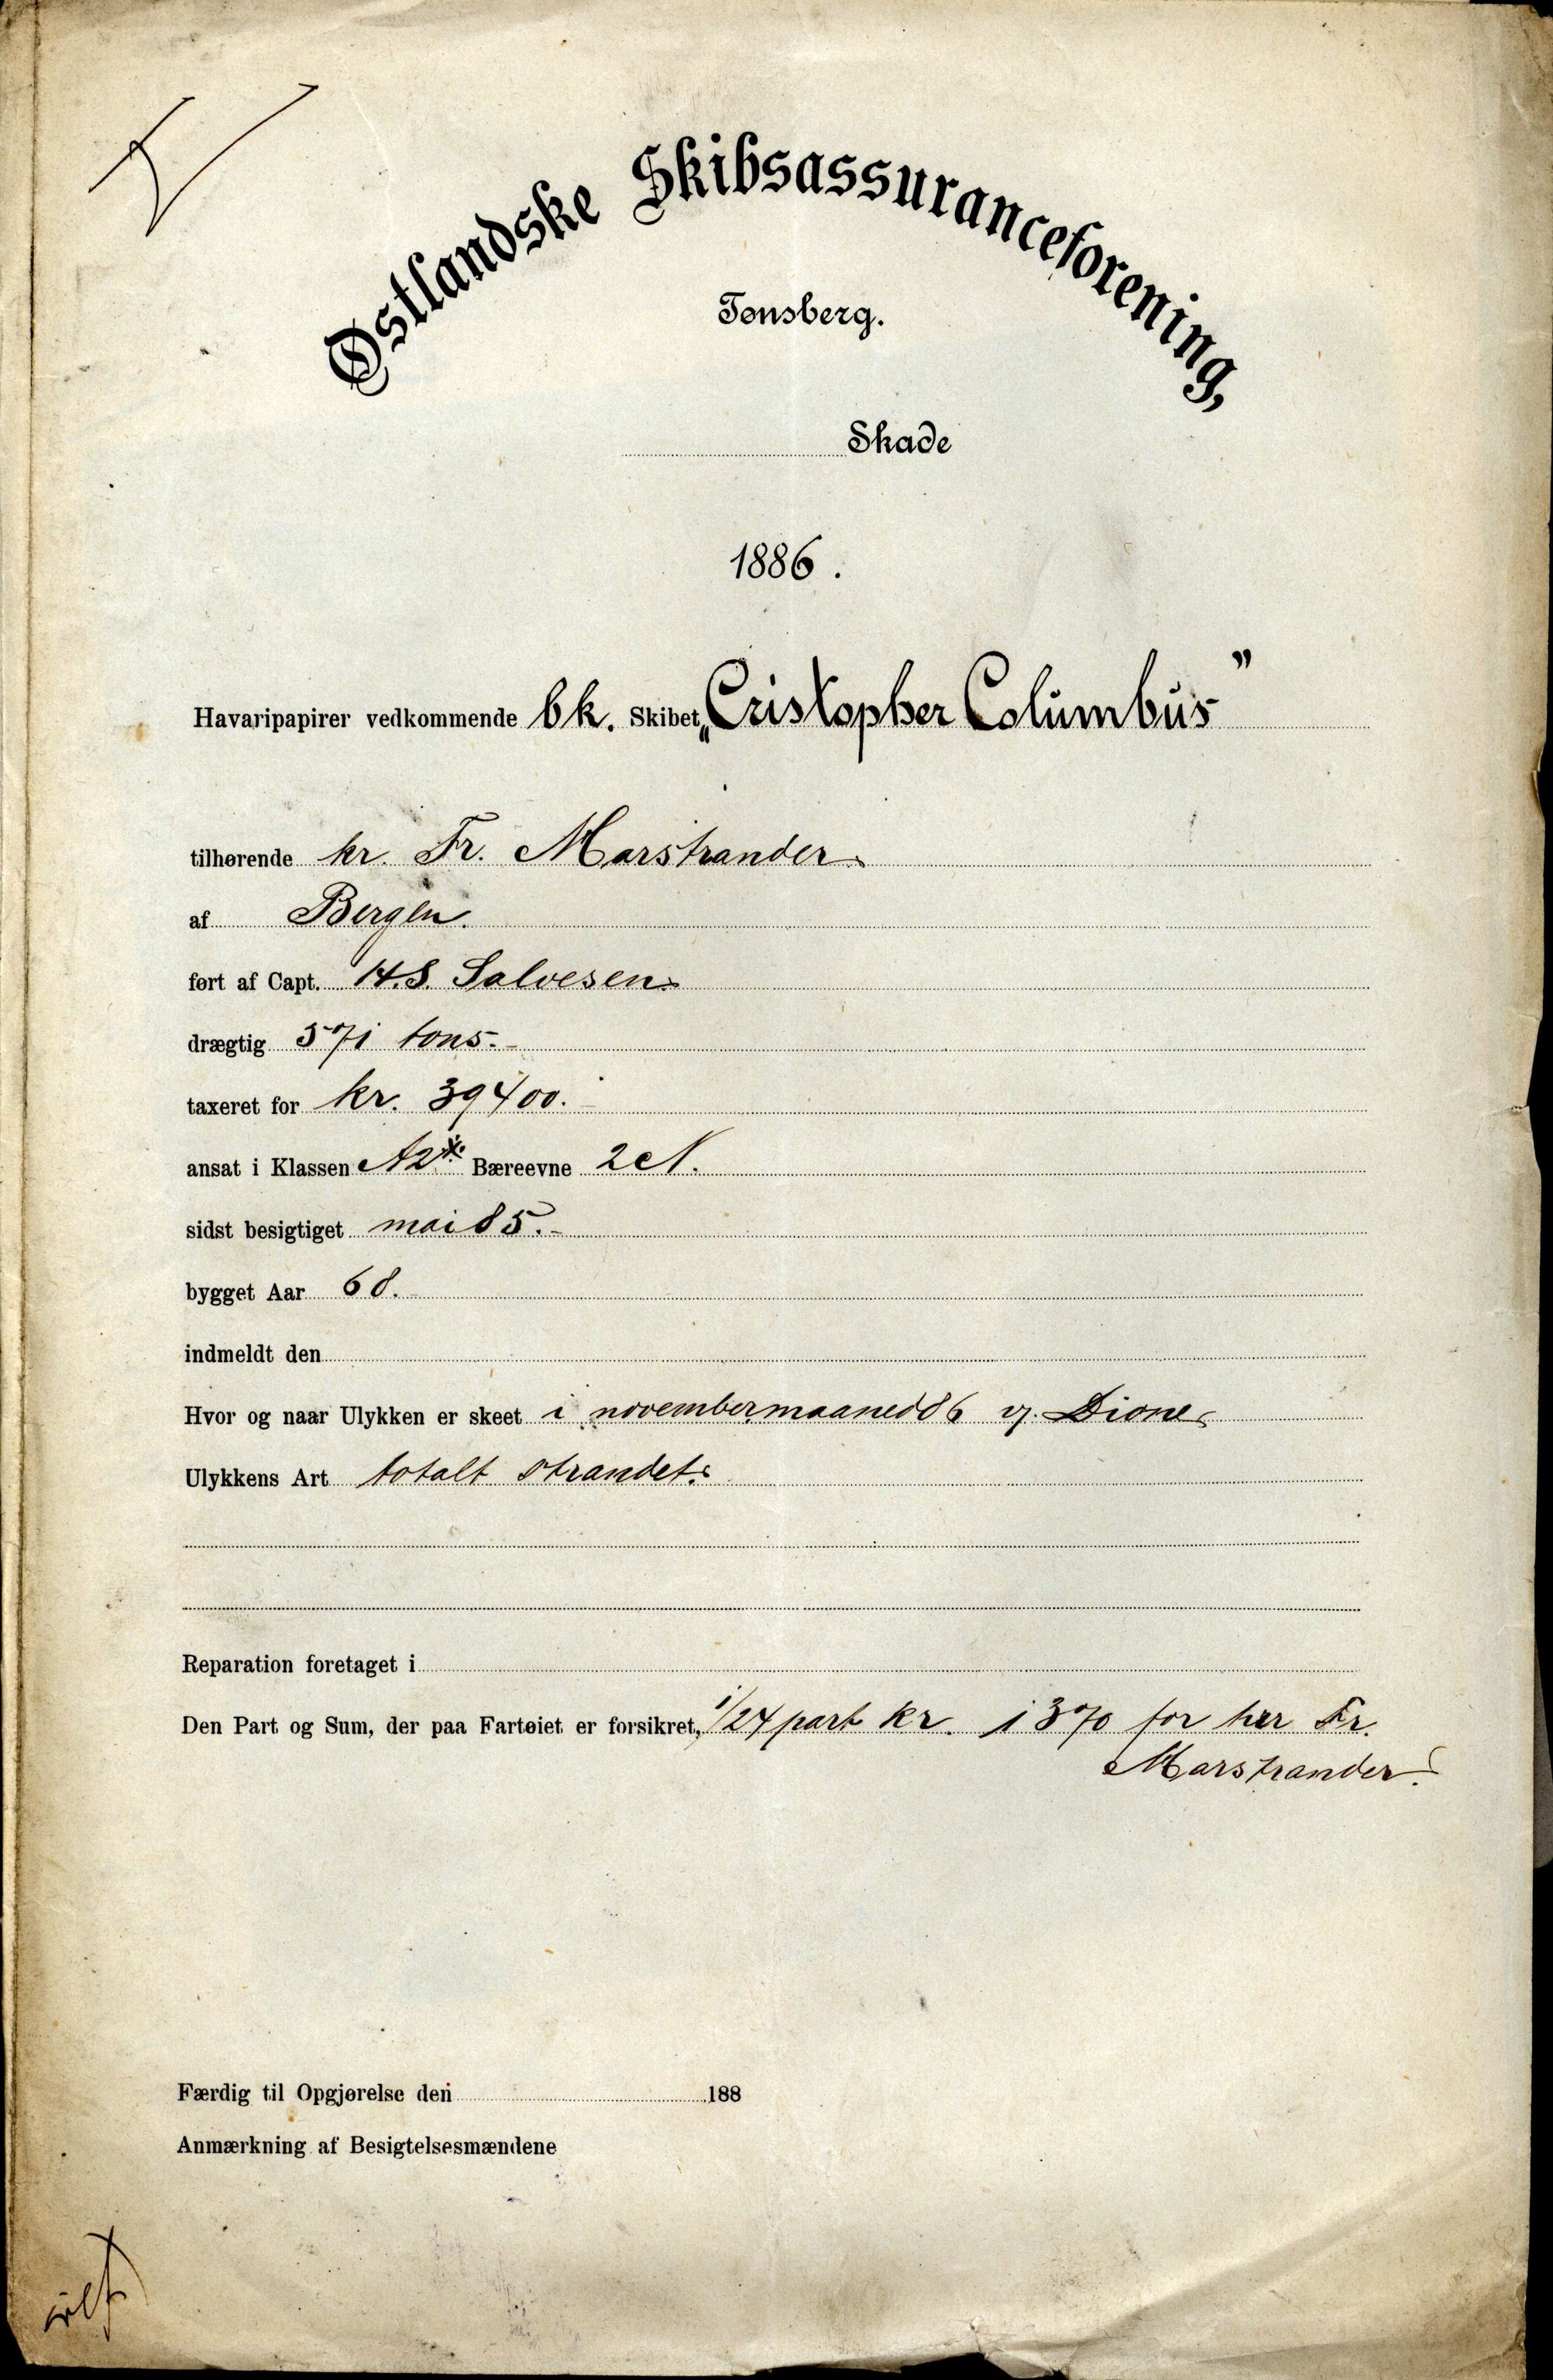 Østlandske Skibsassuranceforening,
Tønsberg.
Skade
1886.
Havaripapirer vedkommende bk. Skibet „Cristopher Columbus”
tilhørende hr. Fr. Marstrander.
af Bergen.
ført af Capt. H.S. Salvesen.
drægtig 571 tons.-
taxeret for kr. 39400.-
ansat i Klassen A2*. Bæreevne 2 N.
sidst besigtiget mai 85.-
bygget Aar 68.
indmeldt den
Hvor og naar Ulykken er skeet i novembermaaned 86 v. Dione
Ulykkens Art totalt strandet.
Reparation foretaget i
Den Part og Sum, der paa Fartøiet er forsikret, 1/24 part kr. 1370 for her Fr.
Marstrander.
Færdig til Opgjørelse den 188
Anmærkning af Besigtelsesmændene